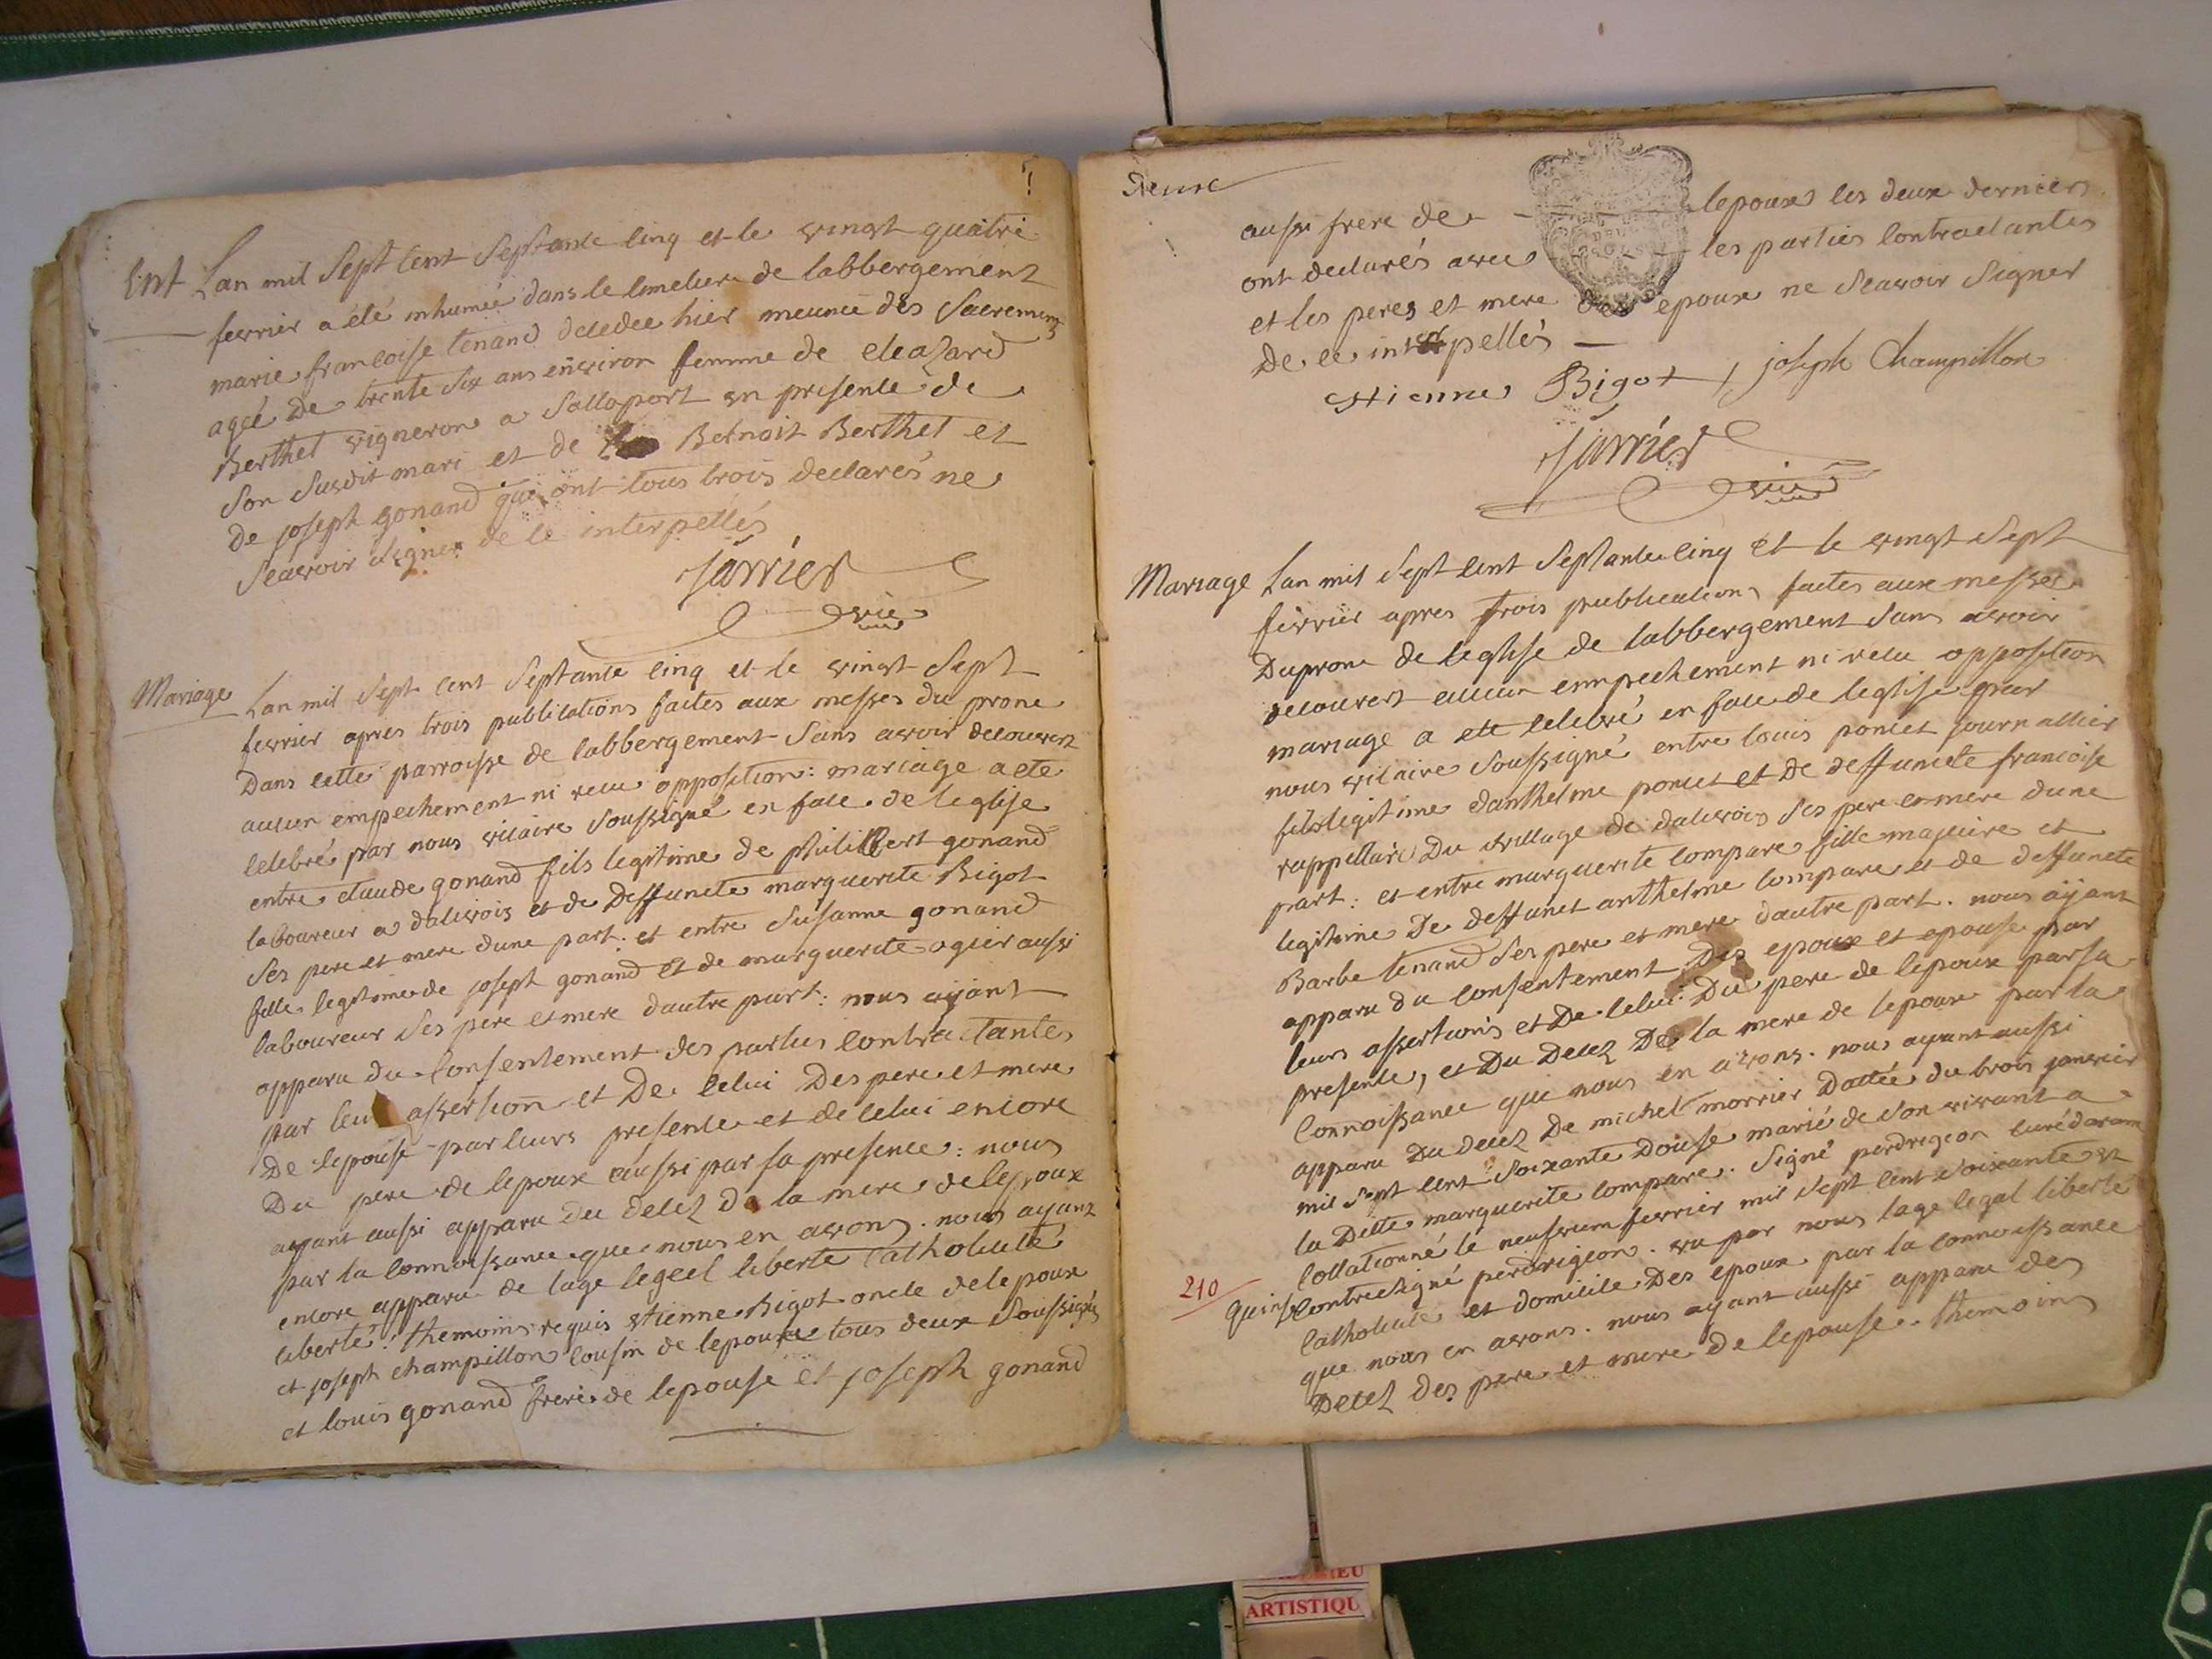 Ent Lan mil Sept Cent Septante Cinq et le vingt quatre
fevrier a été inhumée dans le Cimetiere de labbergement
marie francoise tenand decedee hier meunie des Sacremens
agée De trente Six ans environ femme de eleazard
Berthet vigneron a Sallaport en presence de
Son Susdit mari et de Benoit Berthet et
De joseph gonand qui ont tous trois declarés ne
Scavoir Signer de ce interpellés
Jarrier
vic
Mariage Lan mil Sept Cent Septante Cinq et le vingt Sept
fevrier apres trois publications faites aux messes du prone
Dans cette parroisse de labbergement Sans avoir decouvert
aucun empechement ni recu opposition: mariage a ete
Celebré par nous vicaire Soussigné en face de leglise
entre claude gonand fils legitime de philibert gonand
laboureur a dalivois et de Deffuncte marguerite Bigot
Ses pere et mere dune part. et entre Susanne gonand
fille legitime de joseph gonand et de marguerite ogier aussi
laboureur Ses pere et mere dautre part: nous ayant
apparu du Consentement des parties Contractantes
par leur assertion et De Celui Des pere et mere
De lepouse par leurs presence et de celui encore
Du pere de lepoux aussi par sa presence: nous
ayant aussi apparu du decez De la mere de lepoux
par la Connoissance que nous en avons. nous ayant
encore apparu de lage legal liberte Catholicité
liberté: themoins requis etienne Bigot oncle de lepoux
et joseph champillon Cousin de lepoux tous deux Soussignés
et louis gonand frere de lepouse et joseph gonand
Deuxe
aussi frere de lepoux les deux derniers
ont declarés avec les parties Contractantes
et les peres et mere des epoux ne Scavoir Signer
De ce interpellés
estienne Bigot joseph Champillon
Jarrier
vic
Mariage Lan mil Sept cent Septante cinq et le vingt Sept
fevrier apres trois publications faites aux messes
Du prone de leglise de labbergement Sans avoir
decouvert aucun empechement ni recu opposition
mariage a ete Celebré en face de leglise par
nous vicaire Soussigné entre louis poncet journallier
fils legitime danthelme poncet et De deffuncte francoise
rappellari Du village de dalivois Ses pere et mere dune
part: et entre marguerite Compare fille majeure et
legitime De deffunct anthelme Compare et de deffuncte
Barbe tenand Ses pere et mere dautre part. nous ayant
apparu du Consentement Des epoux et epouse par
leurs assertions et De Celui Du pere de lepoux par sa
presence, et Du Decez De la mere de lepoux par la
Connoissance que nous en avons. nous ayant aussi
apparu Du decez De michel morrier Dattée du trois janvier
mil Sept Cent Soixante Douse marié de Son vivant a
la Ditte marguerite Compare. Signé perdrigeon curé daram
Collationné le neufvieme fevrier mil Sept Cent Soixante et
210 quinse Contresigné perdrigeon. vu par nous lage legal liberté
Catholicité et domicile Des epoux par la connoissance
que nous en avons. nous ayant aussi apparu des
Decez Des pere et mere De lepouse. themoins
ARTISTIQU